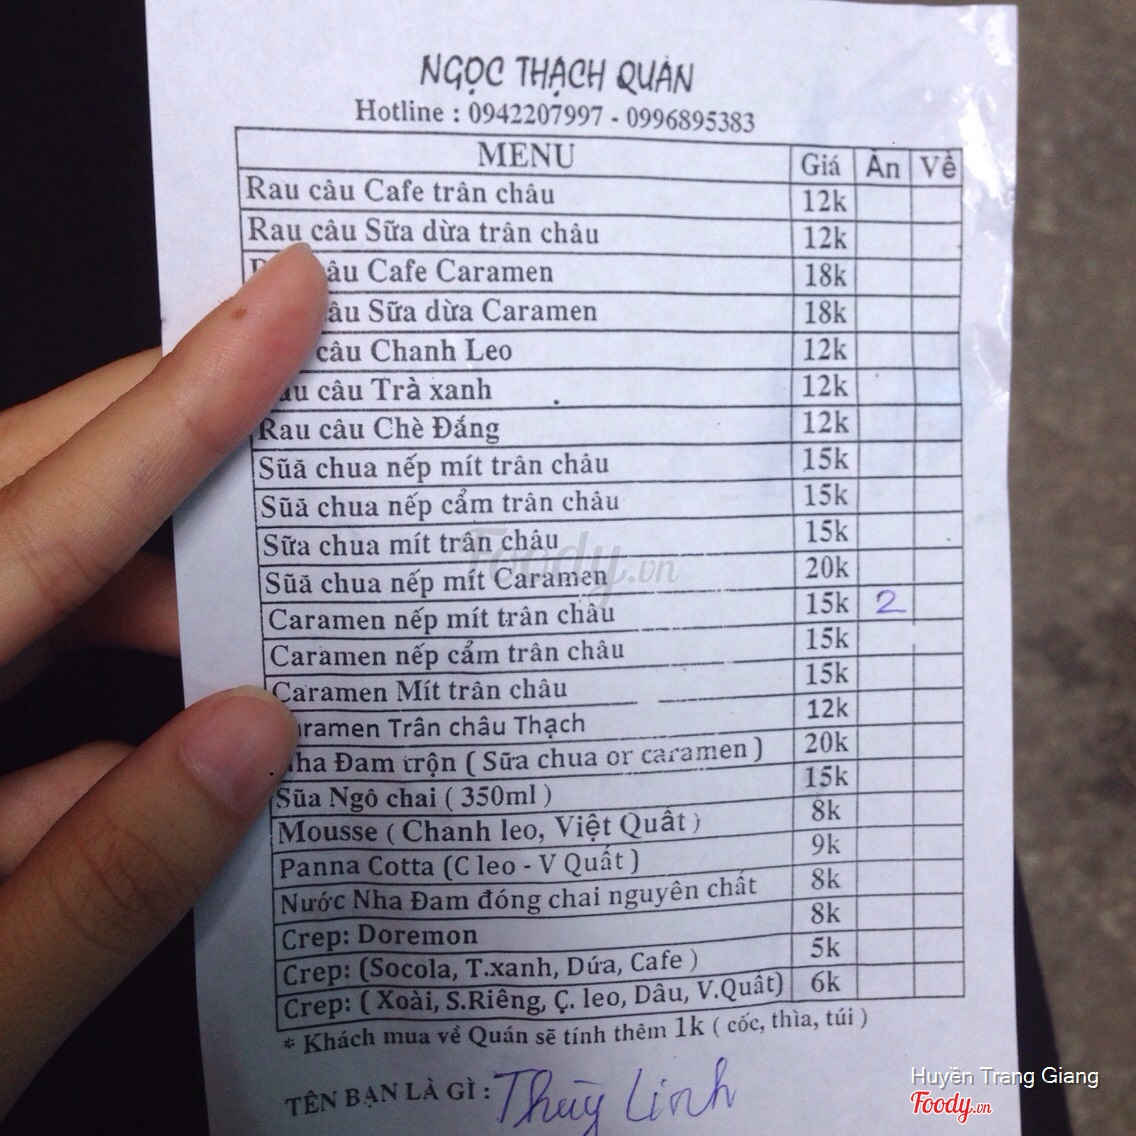 NGỌC THẠCH QUÁN
Hotline : 0942207997 - 0996895383
MENU Giá Ăn Về
Rau câu Cafe trân châu 12k
Rau câu Sữa dừa trân châu 12k
câu Cafe Caramen 18k
câu Sữa dừa Caramen 18k
câu Chanh Leo 12k
Rau câu Trà xanh 12k
Rau câu Chè Đắng 12k
Sữa chua nếp mít trân châu 15k
Sữa chua nếp cẩm trân châu 15k
Sữa chua mít trân châu 15k
Sữa chua nếp mít Caramen 20k
Caramen nếp mít trân châu 15k 2
Caramen nếp cẩm trân châu 15k
Caramen Mít trân châu 15k
Caramen Trân châu Thạch 12k
Nha Đam trộn ( Sữa chua or caramen ) 20k
Sữa Ngô chai ( 350ml ) 15k
Mousse ( Chanh leo, Việt Quất ) 8k
Panna Cotta (C leo - V Quất ) 9k
Nước Nha Đam đóng chai nguyên chất 8k
Crep: Doremon 8k
Crep: (Socola, T.xanh, Dứa, Cafe ) 5k
Crep: ( Xoài, S.Riêng, C. leo, Dâu, V.Quất) 6k
* Khách mua về Quán sẽ tính thêm 1k ( cốc, thìa, túi )
TÊN BẠN LÀ GÌ : Thùy Linh
Foody.vn
Huyền Trang Giang
Foody.vn